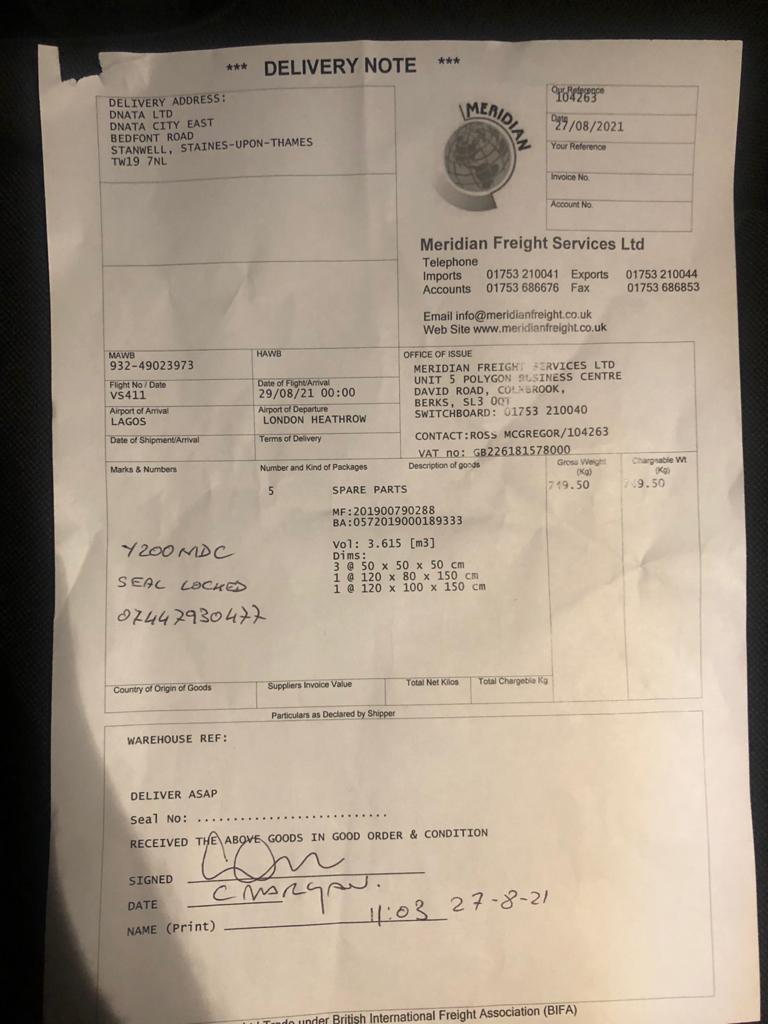 *** DELIVERY NOTE ***
DELIVERY ADDRESS:
DNATA LTD
DNATA CITY EAST
BEDFONT ROAD
STANWELL, STAINES-UPON-THAMES
TW19 7NL
MERIDIAN
Our Reference
104263
Date
27/08/2021
Your Reference
Invoice No.
Account No.
Meridian Freight Services Ltd
Telephone
Imports 01753 210041 Exports 01753 210044
Accounts 01753 686676 Fax 01753 686853
Email info@meridianfreight.co.uk
Web Site www.meridianfreight.co.uk
MAWB
932-49023973
HAWB
Flight No / Date
VS411
Date of Flight/Arrival
29/08/21 00:00
Airport of Arrival
LAGOS
Airport of Departure
LONDON HEATHROW
Date of Shipment/Arrival
Terms of Delivery
OFFICE OF ISSUE
MERIDIAN FREIGHT SERVICES LTD
UNIT 5 POLYGON BUSINESS CENTRE
DAVID ROAD, COLNBROOK,
BERKS, SL3 0QT
SWITCHBOARD: 01753 210040
CONTACT:ROSS MCGREGOR/104263
VAT no: GB226181578000
Marks & Numbers
Number and Kind of Packages
Description of goods
Gross Weight
(Kg)
Chargeable Wt
(Kg)
5 SPARE PARTS 749.50
MF:201900790288
BA:0572019000189333
Vol: 3.615 [m3]
Dims:
3 @ 50 x 50 x 50 cm
1 @ 120 x 80 x 150 cm
1 @ 120 x 100 x 150 cm
Y200MDC
SEAL LOCKED
07447930477
Country of Origin of Goods
Suppliers Invoice Value
Total Net Kilos
Total Chargeble Kg
Particulars as Declared by Shipper
WAREHOUSE REF:
DELIVER ASAP
Seal No: ...........................
RECEIVED THE ABOVE GOODS IN GOOD ORDER & CONDITION
SIGNED
C MORGAN.
DATE
11:03 27-8-21
NAME (Print)
Trade under British International Freight Association (BIFA)